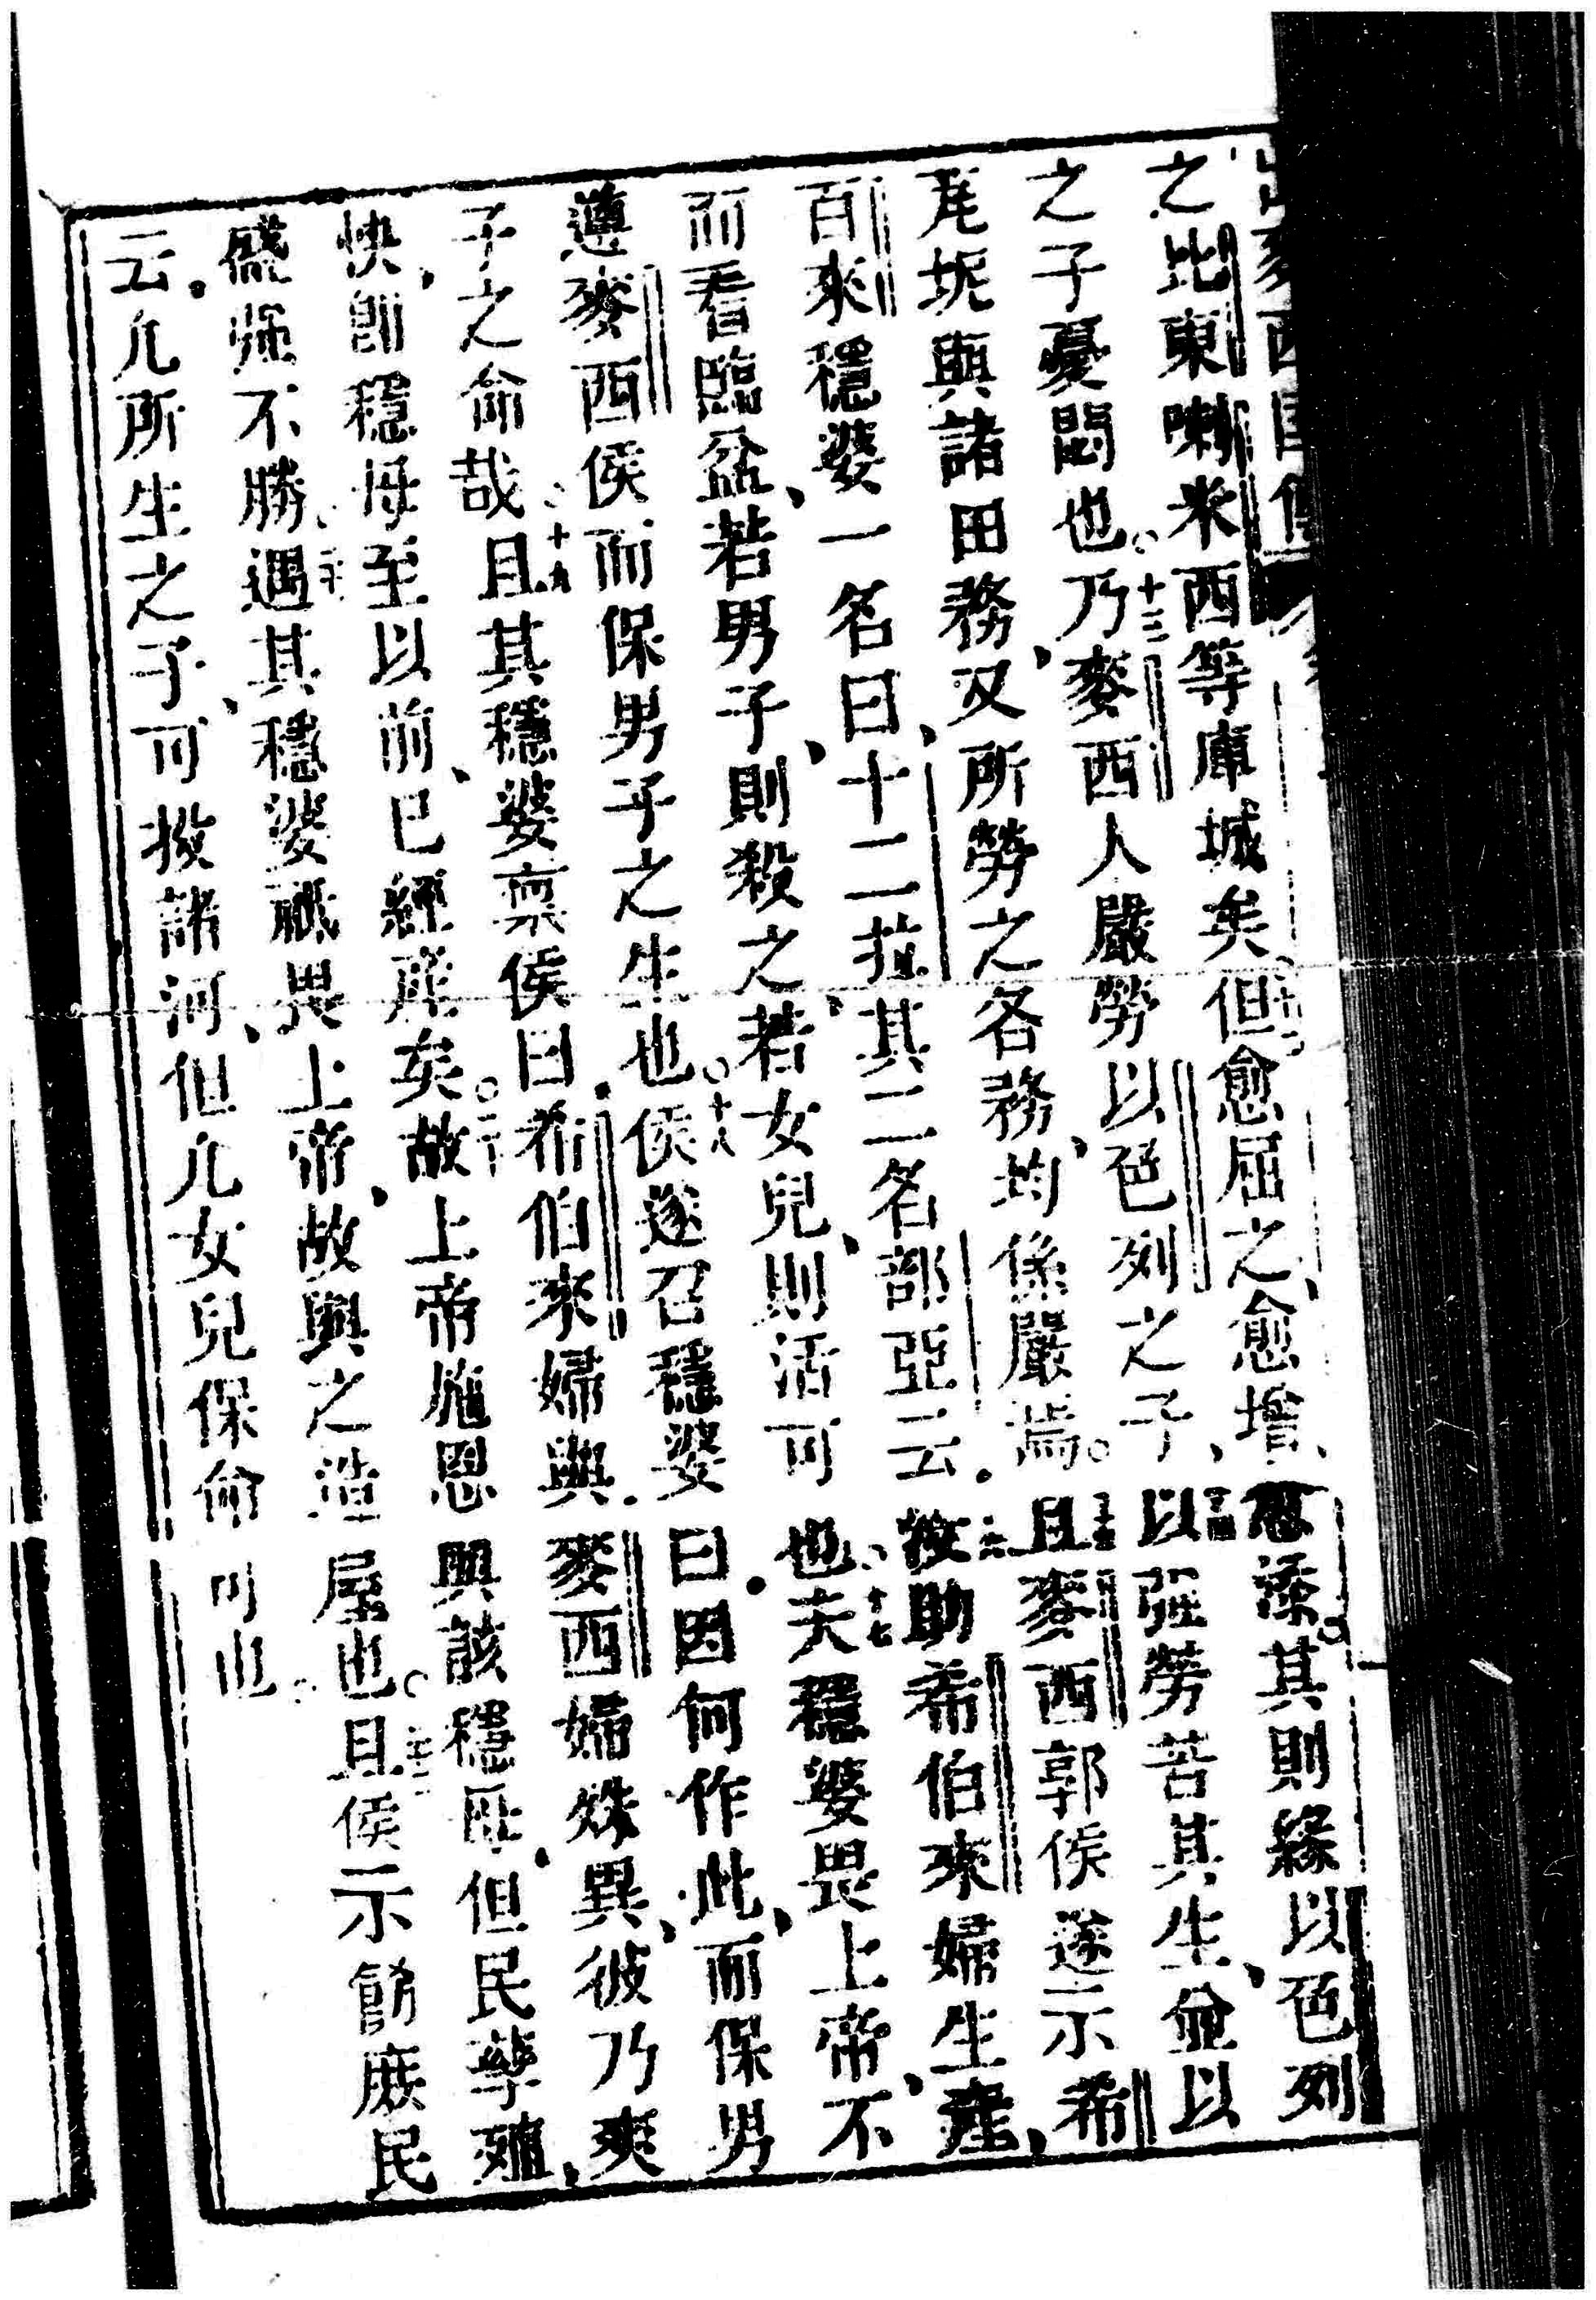 之比東喇米西等庫城矣但愈屈之愈增、愈添其則緣以色列
之子憂悶也。十三乃麥西人嚴勞以色列之子、十四以强勞苦其生、並以
坭與諸田務、又所勞之各務、均係嚴焉。十五且麥西郭侯遂示希
百來穩婆一名曰、十二拉、其二名部亞云。十六按助希伯來婦生產、
而看臨盆、若男子、則殺之、若女兒、則活可也、十七夫穩婆畏上帝、不
遵麥西侯而保男子之生也。十八侯遂召穩婆曰。因何作此、而保男
子之命哉、十九且其穩婆禀侯曰。希伯來婦與麥西婦殊異、彼乃爽
快、卽穩母至以前、已經產矣。二十故上帝施恩與該穩母、但民孳殖、
盛强不勝、遇其穩婆祇畏上帝、故與之造屋也。二十二且侯示飭庶民
云。凡所生之子、可投諸河、但凡女兒保命可也。